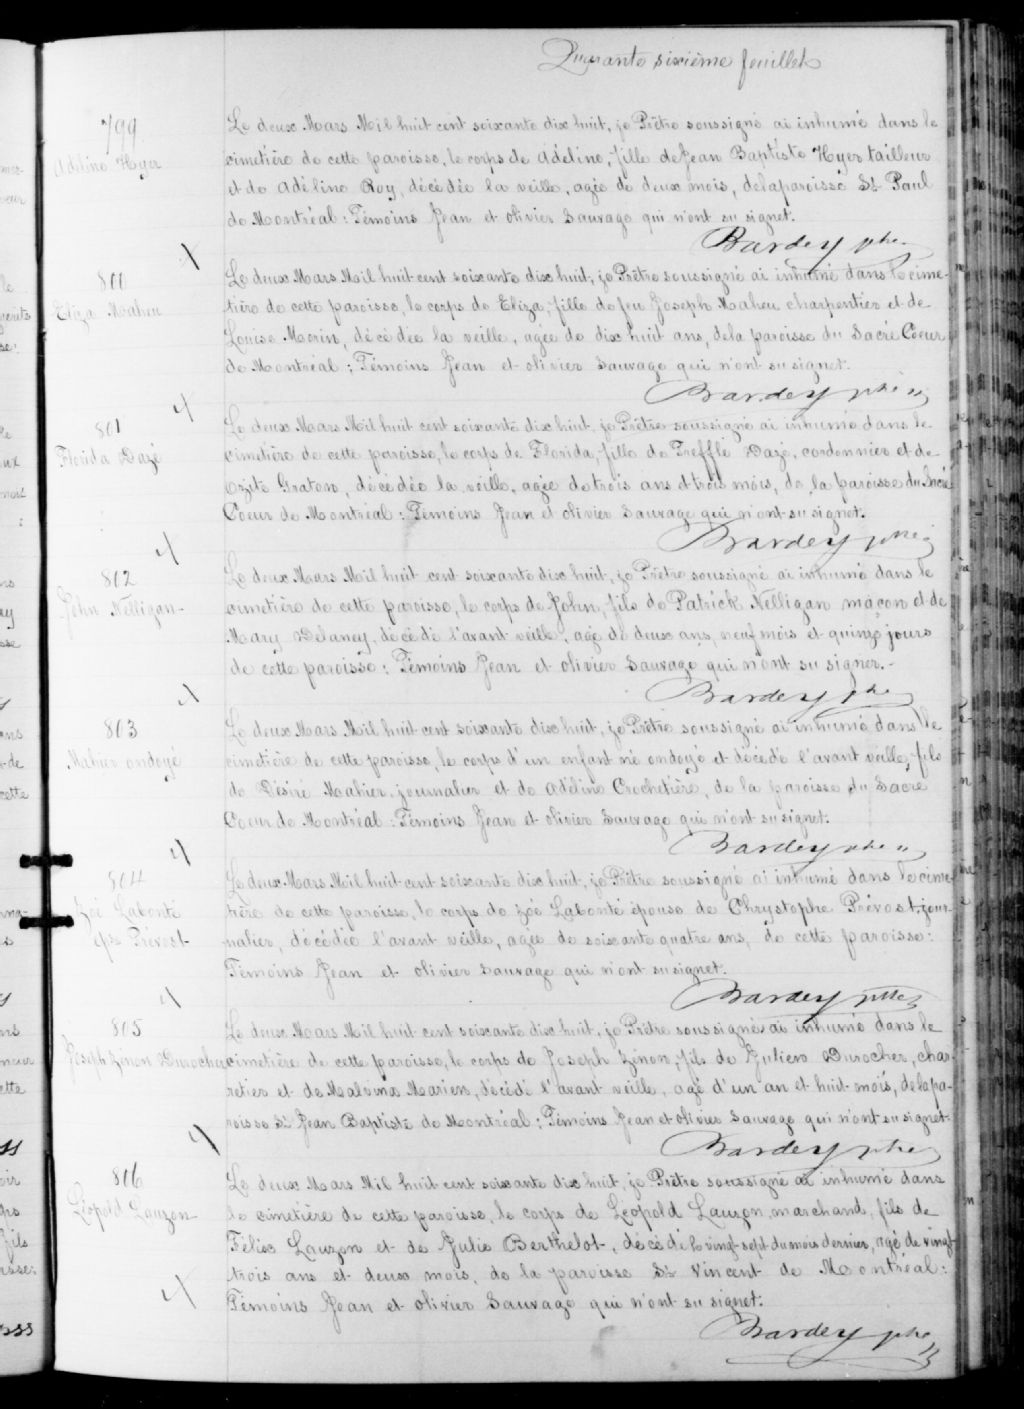 Quarante sixième feuillet
799
Adéline Hyer
Le deux Mars Mil huit cent soixante dix huit, je Prêtre soussigné ai inhumé dans le
cimetière de cette paroisse, le corps de Adéline, fille de Jean Baptiste Hyer tailleur
et de Adéline Roy, décédée la veille, agée de deux mois, de la paroisse St Paul
de Montréal : Témoins Jean et Olivier Sauvage qui n'ont su signer.
Bardey ptre
801
Eliza Maheu
Le deux Mars Mil huit cent soixante dix huit, je Prêtre soussigné ai inhumé dans le cime-
tière de cette paroisse, le corps de Eliza, fille de feu Joseph Maheu charpentier et de
Louise Morin, décédée la veille, agée de dix huit ans, de la paroisse du Sacré Coeur
de Montréal ; Témoins Jean et Olivier Sauvage qui n'ont su signer.
Bardey ptre
801
Florida Dazé
Le deux Mars Mil huit cent soixante dix huit, je Prêtre soussigné ai inhumé dans le
cimetière de cette paroisse, le corps de Florida, fille de Treffle Dazé, cordonnier et de
Ozite Graton, décédée la veille, agée de trois ans et trois mois, de la paroisse du Sacré
Coeur de Montréal : Témoins Jean et Olivier Sauvage qui n'ont su signer.
Bardey ptre
802
John Nelligan
Le deux Mars Mil huit cent soixante dix huit, je Prêtre soussigné ai inhumé dans le
cimetière de cette paroisse, le corps de John, fils de Patrick Nelligan maçon et de
Mary Delaney, décédé l'avant veille, agé de deux ans, neuf mois et quinze jours
de cette paroisse : Témoins Jean et Olivier Sauvage qui n'ont su signer.-
Bardey ptre
803
Mahier ondoyé
Le deux Mars Mil huit cent soixante dix huit, je Prêtre soussigné ai inhumé dans le
cimetière de cette paroisse, le corps d'un enfant né ondoyé et décédé l'avant veille, fils
de Désiré Mahier, journalier et de Adéline Crochetière, de la paroisse du Sacré
Coeur de Montréal : Témoins Jean et Olivier Sauvage qui n'ont su signer.
Bardey ptre
804
Zoé Labonté
épse Prévost
Le deux Mars Mil huit cent soixante dix huit, je Prêtre soussigné ai inhumé dans le cime-
tière de cette paroisse, le corps de Zoé Labonté épouse de Chrystophe Prévost, jour-
nalier, décédée l'avant veille, agée de soixante quatre ans, de cette paroisse :
Témoins Jean et Olivier Sauvage qui n'ont su signer.
Bardey ptre
805
Joseph Zénon Durocher
Le deux Mars Mil huit cent soixante dix huit, je Prêtre soussigné ai inhumé dans le
cimetière de cette paroisse, le corps de Joseph Zénon, fils de Julien Durocher, char-
retier et de Malvina Marien, décédé l'avant veille, agé d'un an et huit mois, de la pa-
roisse St Jean Baptiste de Montréal ; Témoins Jean et Olivier Sauvage qui n'ont su signer.
Bardey ptre
806
Léopold Lauzon
Le deux Mars Mil huit cent soixante dix huit, je Prêtre soussigné ai inhumé dans
le cimetière de cette paroisse, le corps de Léopold Lauzon, marchand, fils de
Félix Lauzon et de Julie Berthelot, décédé le vingt-sept du mois dernier, agé de vingt
trois ans et deux mois, de la paroisse St Vincent de Montréal :
Témoins Jean et Olivier Sauvage qui n'ont su signer.
Bardey ptre